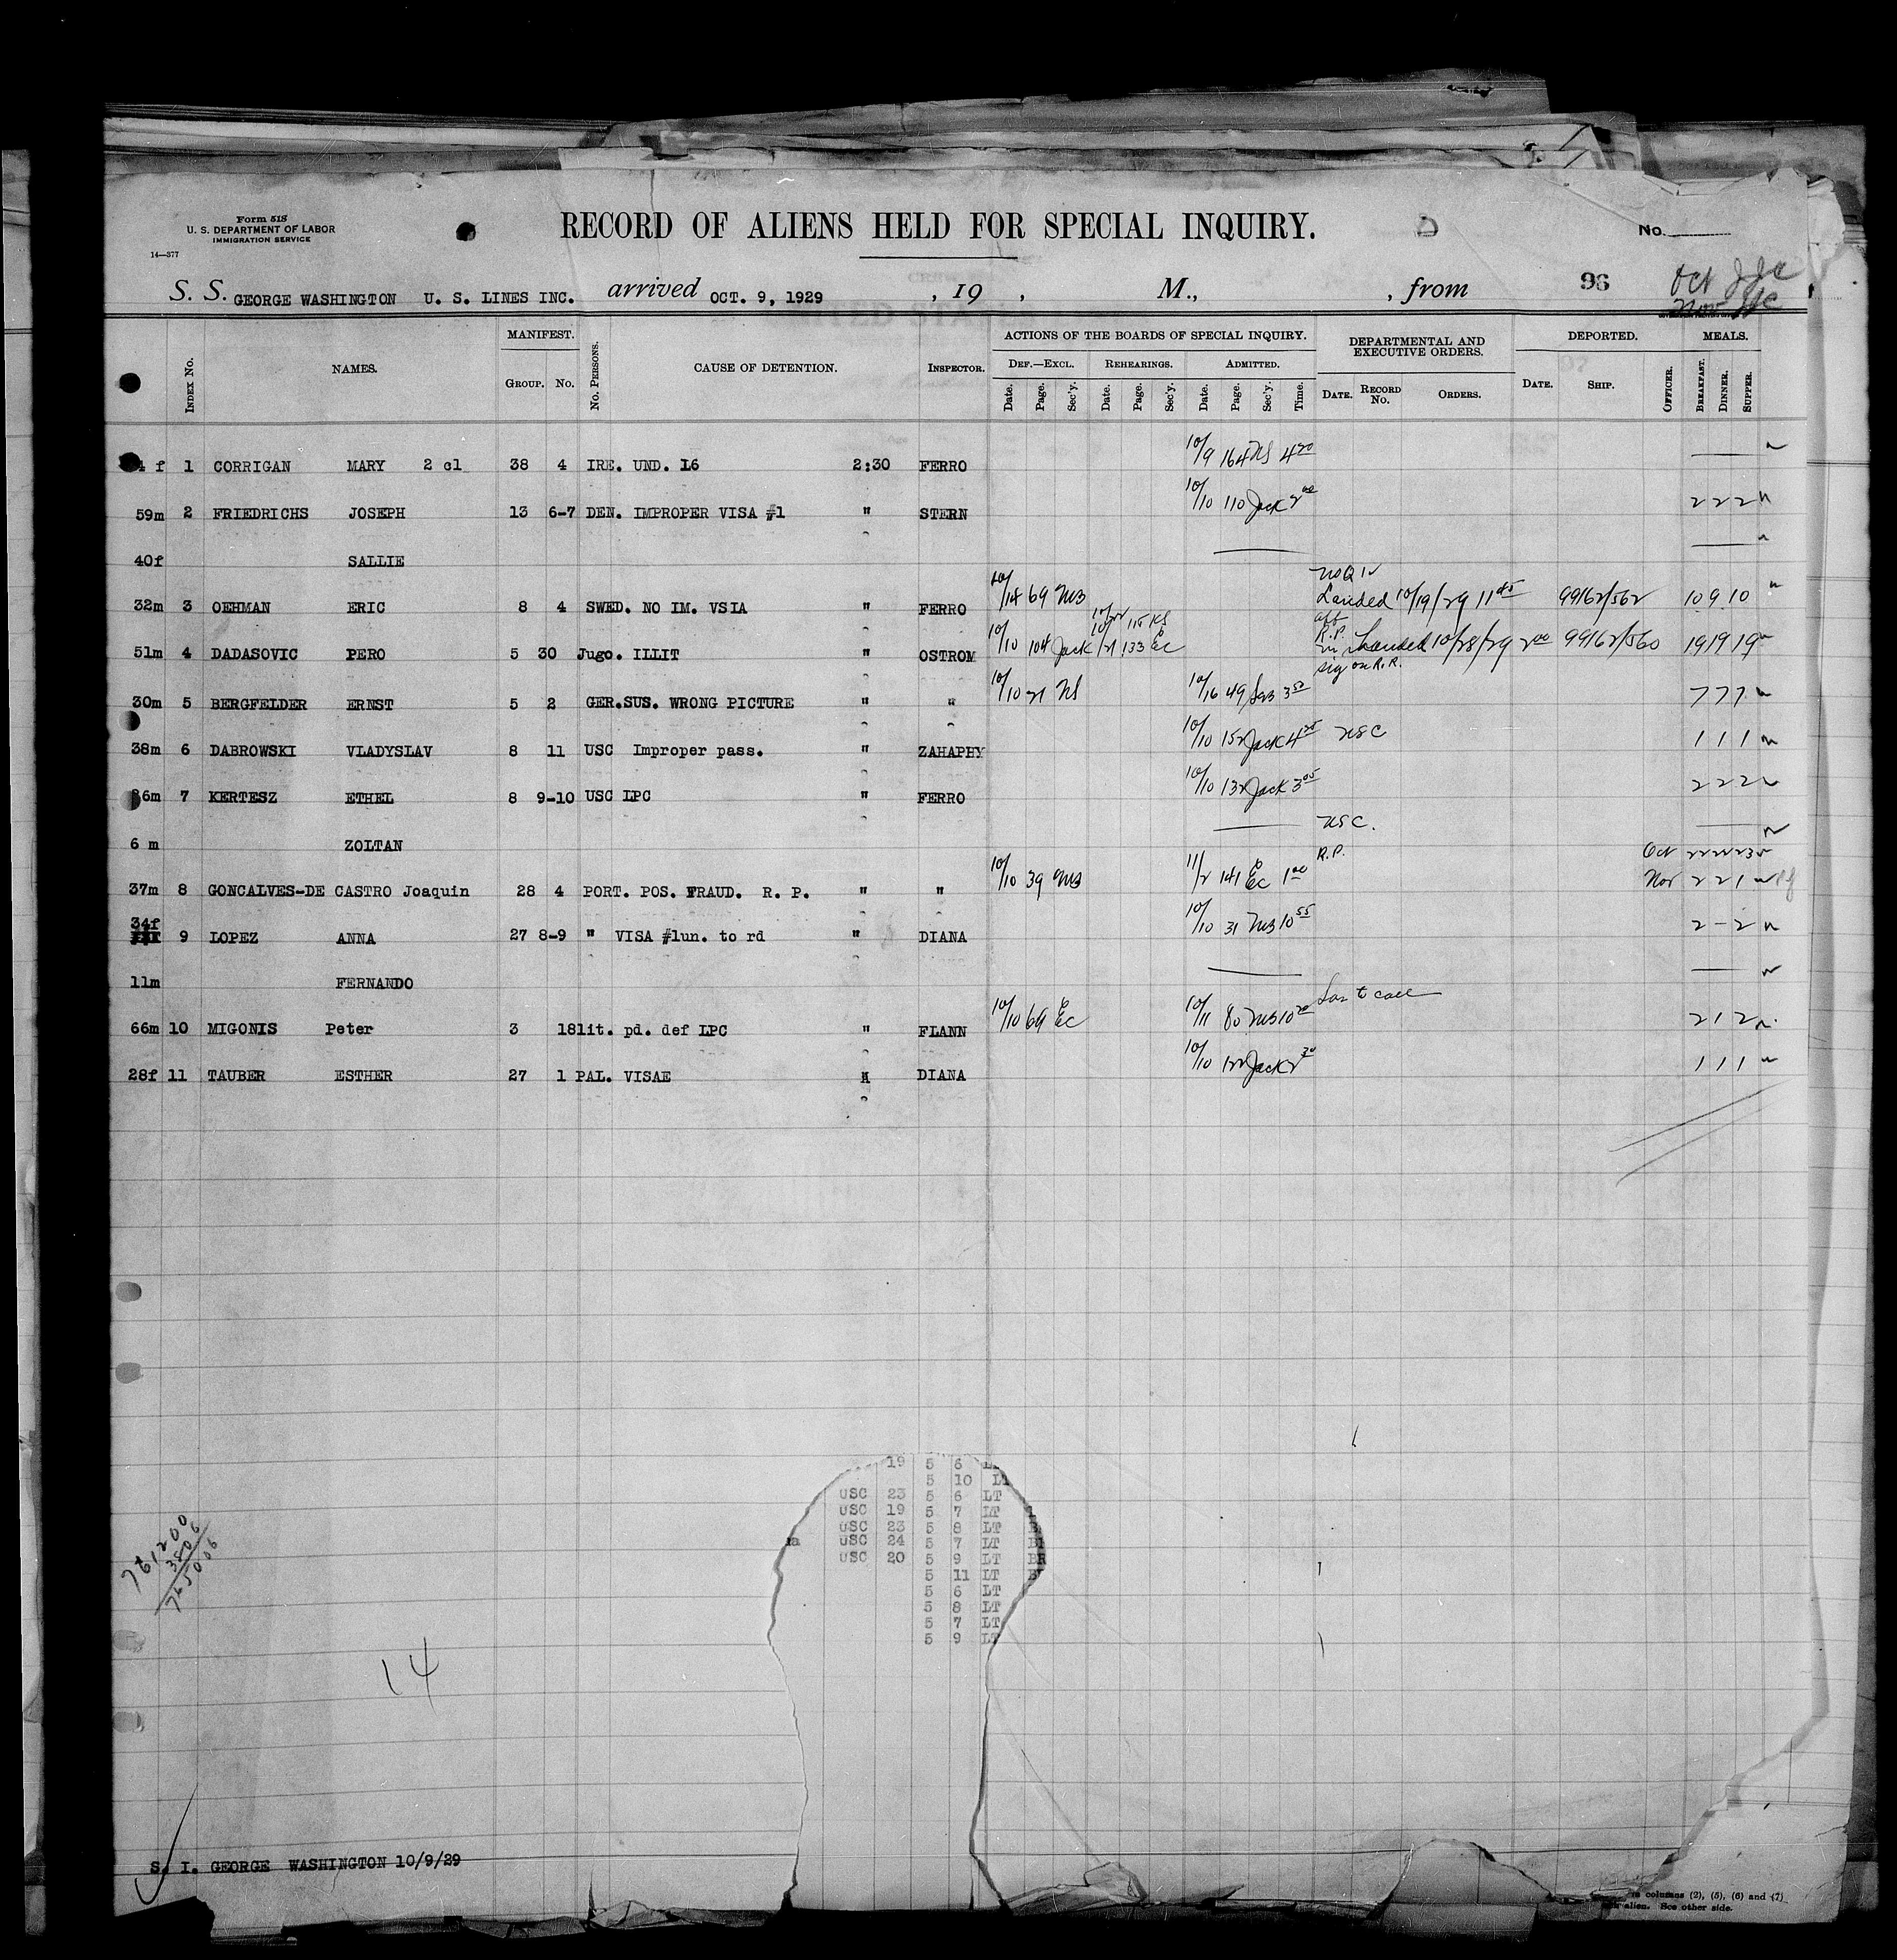 Form 518
U. S. DEPARTMENT OF LABOR
IMMIGRATION SERVICE
14—377
RECORD OF ALIENS HELD FOR SPECIAL INQUIRY.
No.
S. S. GEORGE WASHINGTON U. S. LINES INC. arrived OCT. 9, 1929 , 19 , M., , from 96 Oct
Nov
INDEX No. NAMES. MANIFEST. GROUP. No. No. PERSONS. CAUSE OF DETENTION. INSPECTOR. ACTIONS OF THE BOARDS OF SPECIAL INQUIRY. DEPARTMENTAL AND EXECUTIVE ORDERS. DEPORTED. MEALS.
DEF.—EXCL. REHEARINGS. ADMITTED.
Date. Page. Sec'y. Date. Page. Sec'y. Date. Page. Sec'y. Time. DATE. RECORD No. ORDERS. DATE. SHIP. OFFICER. BREAKFAST. DINNER. SUPPER.
f 1 CORRIGAN MARY 2 cl 38 4 IRE. UND. 16 2:30 FERRO 10/9 164 NS 4 20
59m 2 FRIEDRICHS JOSEPH 13 6-7 DEN. IMPROPER VISA #1 " STERN 10/10 110 Jack 2 00 2 2 2
40f SALLIE
32m 3 OEHMAN ERIC 8 4 SWED. NO IM. VSIA " FERRO 10/14 69 MB Landed 10/19/29 11 45 99162/562 10 9 10
51m 4 DADASOVIC PERO 5 30 Jugo. ILLIT " OSTROM 10/10 104 Jack 10/22 115 KS 10/21 133 EC R.P. Landed 10/28/29 2 00 99162/560 19 19 19
sig on R.R.
30m 5 BERGFELDER ERNST 5 2 GER.SUS. WRONG PICTURE " " 10/10 21 NS 10/16 49 3 7 7 7
38m 6 DABROWSKI VLADYSLAV 8 11 USC Improper pass. " ZAHAPHY 10/10 152 Jack 4 USC 1 1 1
6m 7 KERTESZ ETHEL 8 9-10 USC LPC " FERRO 10/10 132 Jack 3 05 2 2 2
6 m ZOLTAN USC.
37m 8 GONCALVES-DE CASTRO Joaquin 28 4 PORT. POS. FRAUD. R. P. " " 10/10 39 MB 11/2 141 EC 1 00 R.P. Oct 22 22 23 Nov 2 2 1
34f 9 LOPEZ ANNA 27 8-9 " VISA #1un. to rd " DIANA 10/10 31 MB 10 55 2 - 2
11m FERNANDO
66m 10 MIGONIS Peter 3 18 lit. pd. def LPC " FLANN 10/10 69 EC 10/11 80 MB 10 20 2 1 2
28f 11 TAUBER ESTHER 27 1 PAL. VISAE " DIANA 10/10 122 Jack 2 30 1 1 1
19 5 6
5 10
USC 23 5 6 LT
USC 19 5 7 LT
USC 23 5 8 LT
USC 24 5 7 LT
USC 20 5 9 LT BR
5 11 LT
5 6 LT
5 8 LT
5 7 LT
5 9 LT
761200
3806
765006
14
S. I. GEORGE WASHINGTON 10/9/29
columns (2), (5), (6) and (7)
alien. See other side.